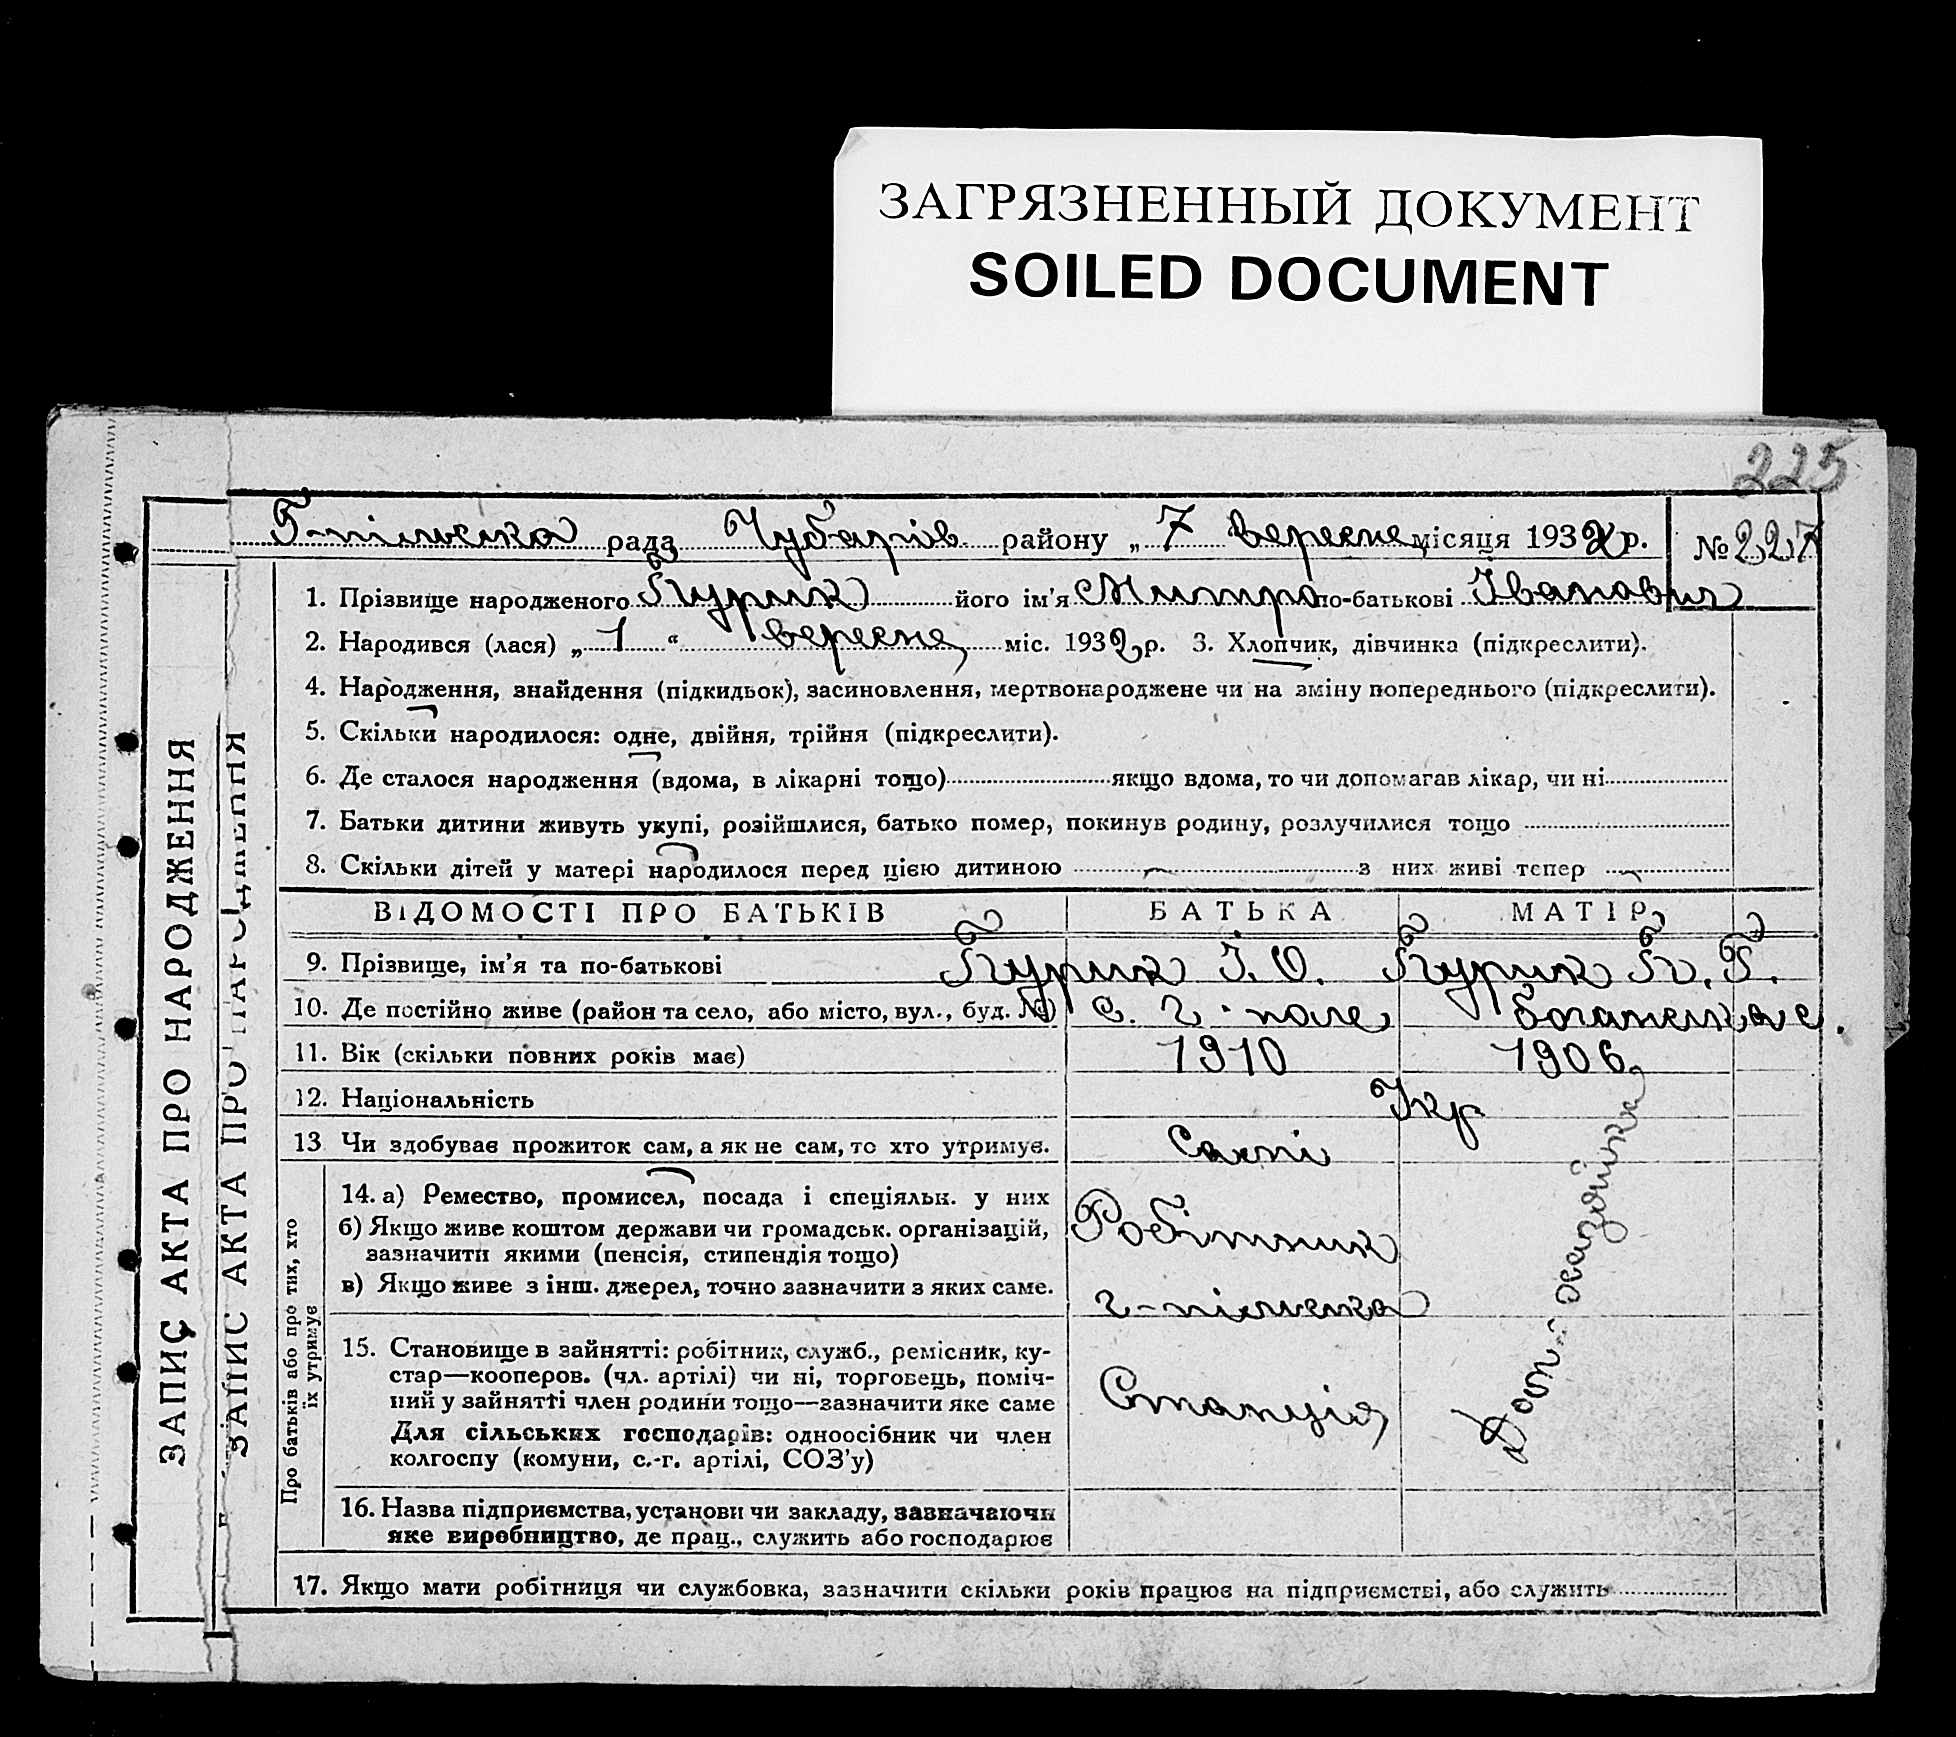 ЗАГРЯЗНЕННЫЙ ДОКУМЕНТ
SOILED DOCUMENT
225
Г-пільська рада Чубарів району „ 7 вересня місяця 1932 р. № 227
1. Прізвище народженого Курик його ім'я Митро по-батькові Іванович
2. Народився (лася) „ 1 “ вересня міс. 1932 р. 3. Хлопчик, дівчинка (підкреслити).
4. Народження, знайдення (підкидьок), засиновлення, мертвонароджене чи на зміну попереднього (підкреслити).
5. Скільки народилося: одне, двійня, трійня (підкреслити).
6. Де сталося народження (вдома, в лікарні тощо) якщо вдома, то чи допомагав лікар, чи ні
7. Батьки дитини живуть укупі, розійшлися, батько помер, покинув родину, розлучилися тощо
8. Скільки дітей у матері народилося перед цією дитиною – з них живі тепер –
ВІДОМОСТІ ПРО БАТЬКІВ БАТЬКА МАТІР
9. Прізвище, ім'я та по-батькові Курик І. О. Курик К. Г.
10. Де постійно живе (район та село, або місто, вул., буд. №) с. Г-поле
11. Вік (скільки повних років має) 1910 1906
12. Національність Укр
13. Чи здобуває прожиток сам, а як не сам, то хто утримує. Самі
14. а) Ремество, промисел, посада і спеціяльн. у них
б) Якщо живе коштом держави чи громадськ. організацій,
зазначити якими (пенсія, стипендія тощо)
в) Якщо живе з інш. джерел, точно зазначити з яких саме.
Робітник
г-пільська
Станція
Дом-хазяйка
15. Становище в зайнятті: робітник, служб., ремісник, ку-
стар—кооперов. (чл. артілі) чи ні, торговець, поміч-
ний у зайнятті член родини тощо—зазначити яке саме
Для сільських господарів: одноосібник чи член
колгоспу (комуни, с.-г. артілі, СОЗ'у)
16. Назва підприємства, установи чи закладу, зазначаючи
яке виробництво, де прац., служить або господарює
17. Якщо мати робітниця чи службовка, зазначити скільки років працює на підприємстві, або служить
Про батьків або про тих, хто
їх утримує
ЗАПИС АКТА ПРО НАРОДЖЕННЯ
ЗАПИС АКТА ПРО НАРОДЖЕННЯ